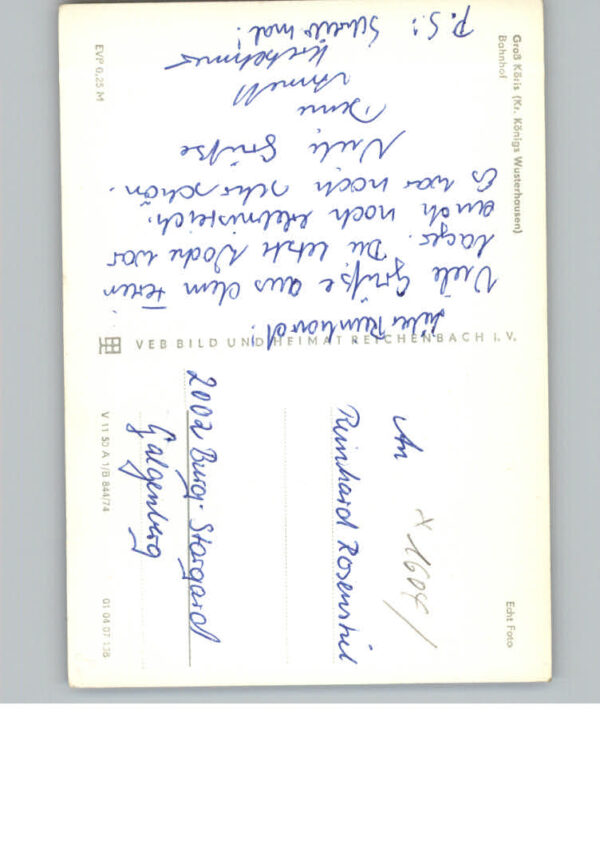 Groß Köris (Kr. Königs Wusterhausen)
Bahnhof
Lieber Reinhard!
Viele Grüße aus dem Ferien
lager. Die letzte Woche war
auch noch erlebnisreich.
Es war noch sehr schön.
Viele Grüße
Deine
P.S.: Schreib mal!
EVP 0,25 M
VEB BILD UND HEIMAT REICHENBACH i. V.
An
Reinhard Rosenstiel
2002 Burg Stargard
Galgenberg
x 1604/
Echt Foto
V 11 50 A 1/B 844/74
01 04 07 138